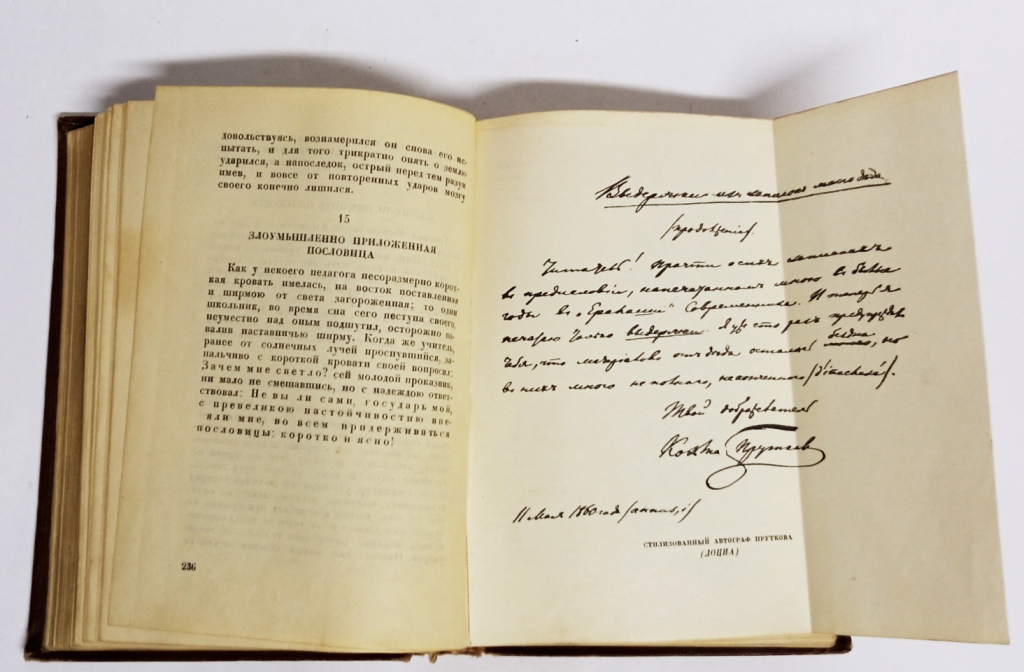 довольствуясь, вознамерился он снова его ис-
пытать, и для того трикратно опять о землю
ударился, а напоследок, острый перед тем разум
имев, и вовсе от повторенных ударов мозгу
своего конечно лишился.
15
ЗЛОУМЫШЛЕННО ПРИЛОЖЕННАЯ
ПОСЛОВИЦА
Как у некоего педагога несоразмерно корот-
кая кровать имелась, на восток поставленная
и ширмою от света загороженная; то один
школьник, во время сна сего пестуна своего,
неуместно над оным подшутил, осторожно по-
валив наставничью ширму. Когда же учитель,
ранее от солнечных лучей проснувшийся, за-
пальчиво с короткой кровати своей вопросил:
Зачем мне светло? сей молодой проказник,
ни мало не смешавшись, но с надеждою ответ-
ствовал: Не вы ли сами, государь мой,
с превеликою настойчивостию вне-
яли мне, во всем придерживаться
пословицы: коротко и ясно!
236
Выдержки из записок моего деда
/продолжение/.
Читатель! Прочти о сих записках
в предисловіи, напечатанном мною в былые
годы в „Ералаши" Современника. И теперь я
печатаю только выдержки. Я уже сто раз предупреждал
тебя, что матеріалов от деда осталось бездна, но
в них много неполного, неоконченного /d'inachevé/.
Твой доброжелатель
Козьма Прутков
11 Мая 1860 года /annus, i/
СТИЛИЗОВАННЫЙ АВТОГРАФ ПРУТКОВА
(ЛОЦИА)